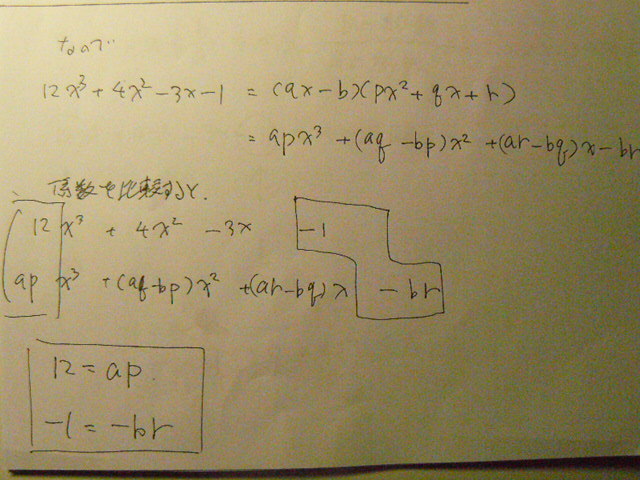 なので
12x³ + 4x² - 3x - 1 = (ax - b)(px² + qx + r)
= apx³ + (aq - bp)x² + (ar - bq)x - br
係数を比較すると、
12x³ + 4x² - 3x - 1
apx³ + (aq - bp)x² + (ar - bq)x - br
12 = ap.
-1 = -br